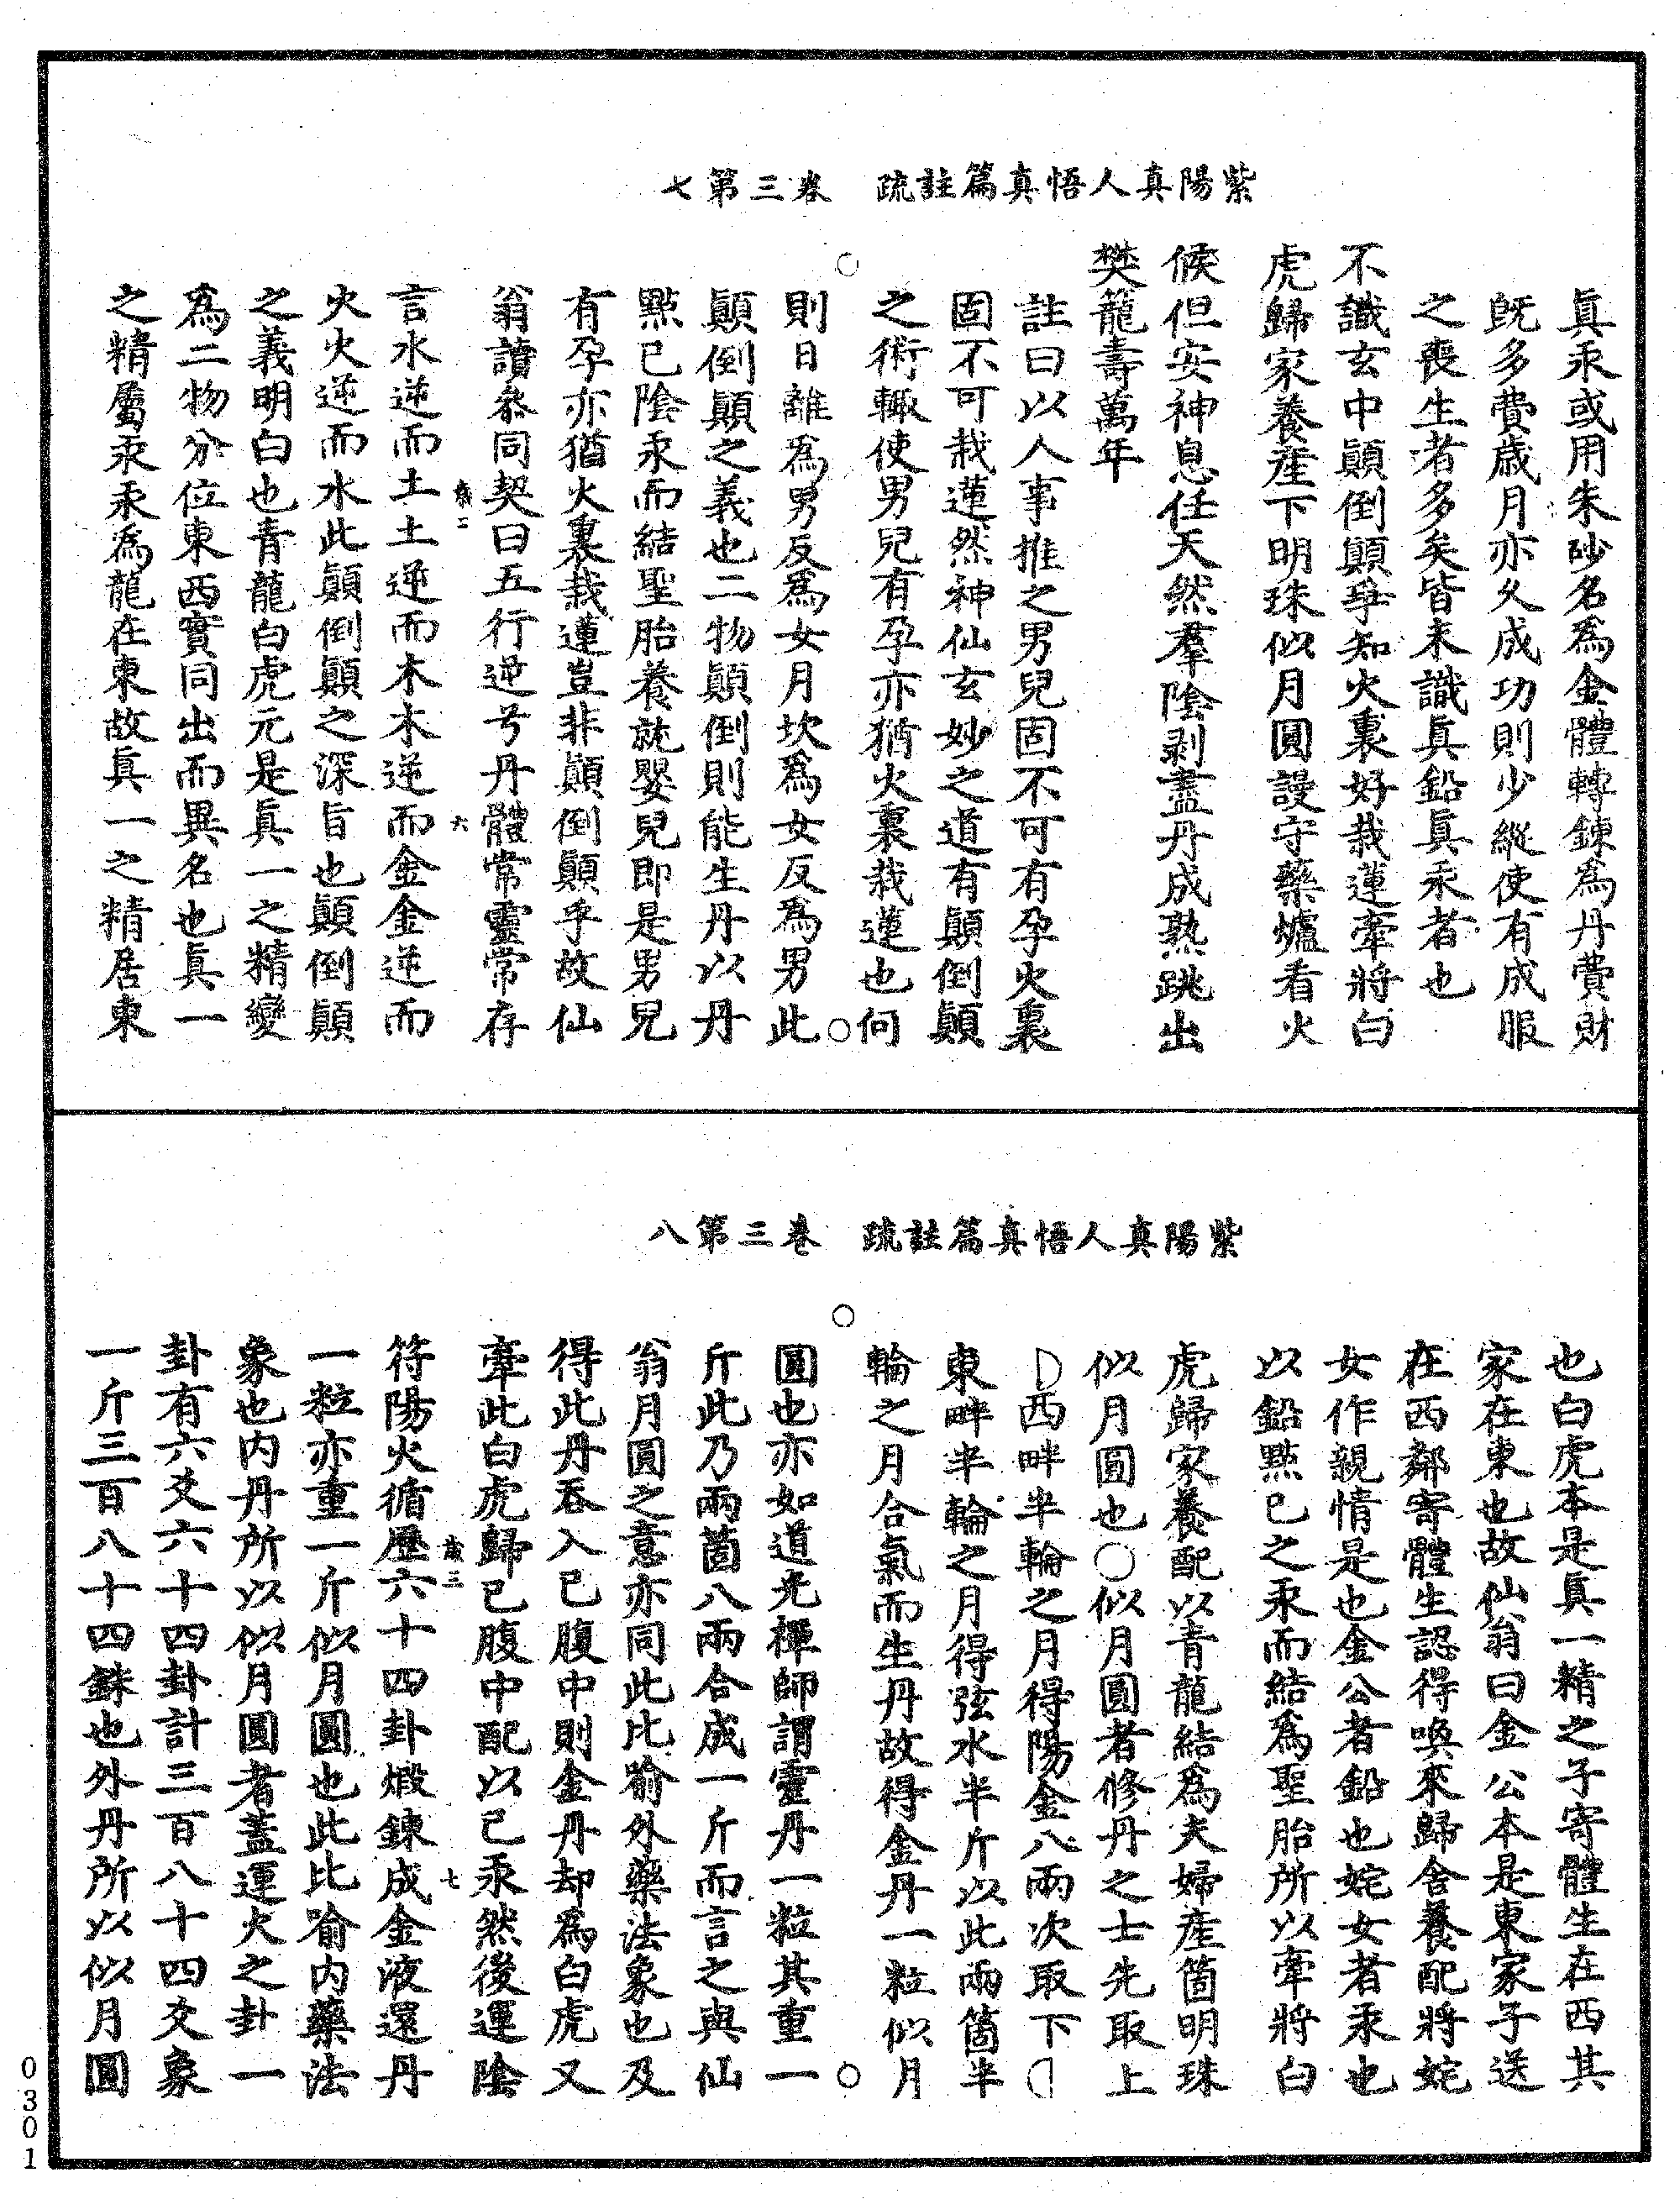 紫陽真人悟真篇註疏　卷三第七
眞汞或用朱砂名爲金體轉鍊爲丹費財
旣多費歲月亦久成功則少縱使有成服
之喪生者多矣皆未識眞鉛眞汞者也
不識玄中顚倒顚爭知火裏好栽蓮牽將白
虎歸家養產下明珠似月圓謾守藥爐看火
候但安神息任天然羣陰剥盡丹成熟跳出
樊籠壽萬年
註曰以人事推之男兒固不可有孕火裏
固不可栽蓮然神仙玄妙之道有顚倒顚
之術輙使男兒有孕亦猶火裏栽蓮也何
則日離爲男反爲女月坎爲女反爲男此
顚倒顚之義也二物顚倒則能生丹以丹
㸃已陰汞而結聖胎養就嬰兒即是男兒
有孕亦猶火裏栽蓮豈非顚倒顚乎故仙
翁讀叅同契曰五行逆兮丹體常靈常存
六
言水逆而土土逆而木木逆而金金逆而
火火逆而水此顚倒顚之深旨也顚倒顚
之義明白也青龍白虎元是眞一之精變
爲二物分位東西實同出而異名也眞一
之精屬汞汞爲龍在東故眞一之精居東
紫陽真人悟真篇註疏　卷三第八
也白虎本是眞一精之子寄體生在西其
家在東也故仙翁曰金公本是東家子送
在西鄰寄體生認得喚來歸舍養配將姹
女作親情是也金公者鉛也姹女者汞也
以鉛㸃已之汞而結爲聖胎所以牽將白
虎歸家養配以青龍結爲夫婦產箇明珠
似月圓也〇似月圓者修丹之士先取上
☽西畔半輪之月得陽金八兩次取下☾
東畔半輪之月得弦水半斤以此兩箇半
輪之月合氣而生丹故得金丹一粒似月
圓也亦如道光禪師謂靈丹一粒其重一
斤此乃兩箇八兩合成一斤而言之與仙
翁月圓之意亦同此比喻外藥法象也及
得此丹吞入已腹中則金丹却爲白虎又
牽此白虎歸已腹中配以已汞然後運陰
七
符陽火循歷六十四卦煅鍊成金液還丹
一粒亦重一斤似月圓也此比喻内藥法
象也内丹所以似月圓者蓋運火之卦一
卦有六爻六十四卦計三百八十四爻象
一斤三百八十四銖也外丹所以似月圓
0301